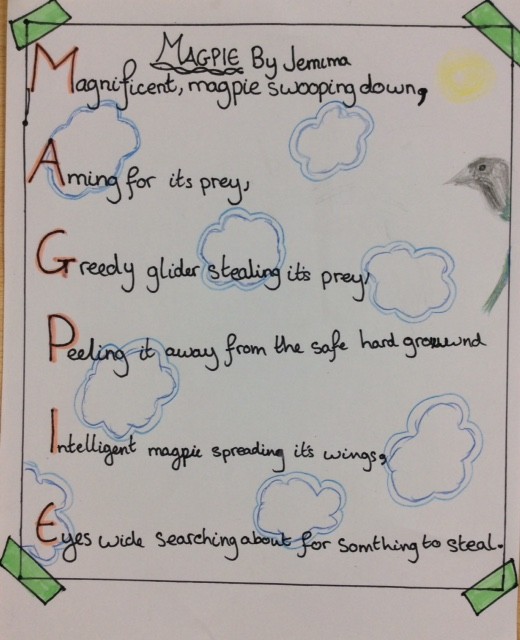 MAGPIE By Jemima
Magnificent, magpie swooping down,
Aming for its prey,
Greedy glider stealing it's prey,
Peeling it away from the safe hard grouwnd
Intelligent magpie spreading it's wings,
Eyes wide searching about for somthing to steal.